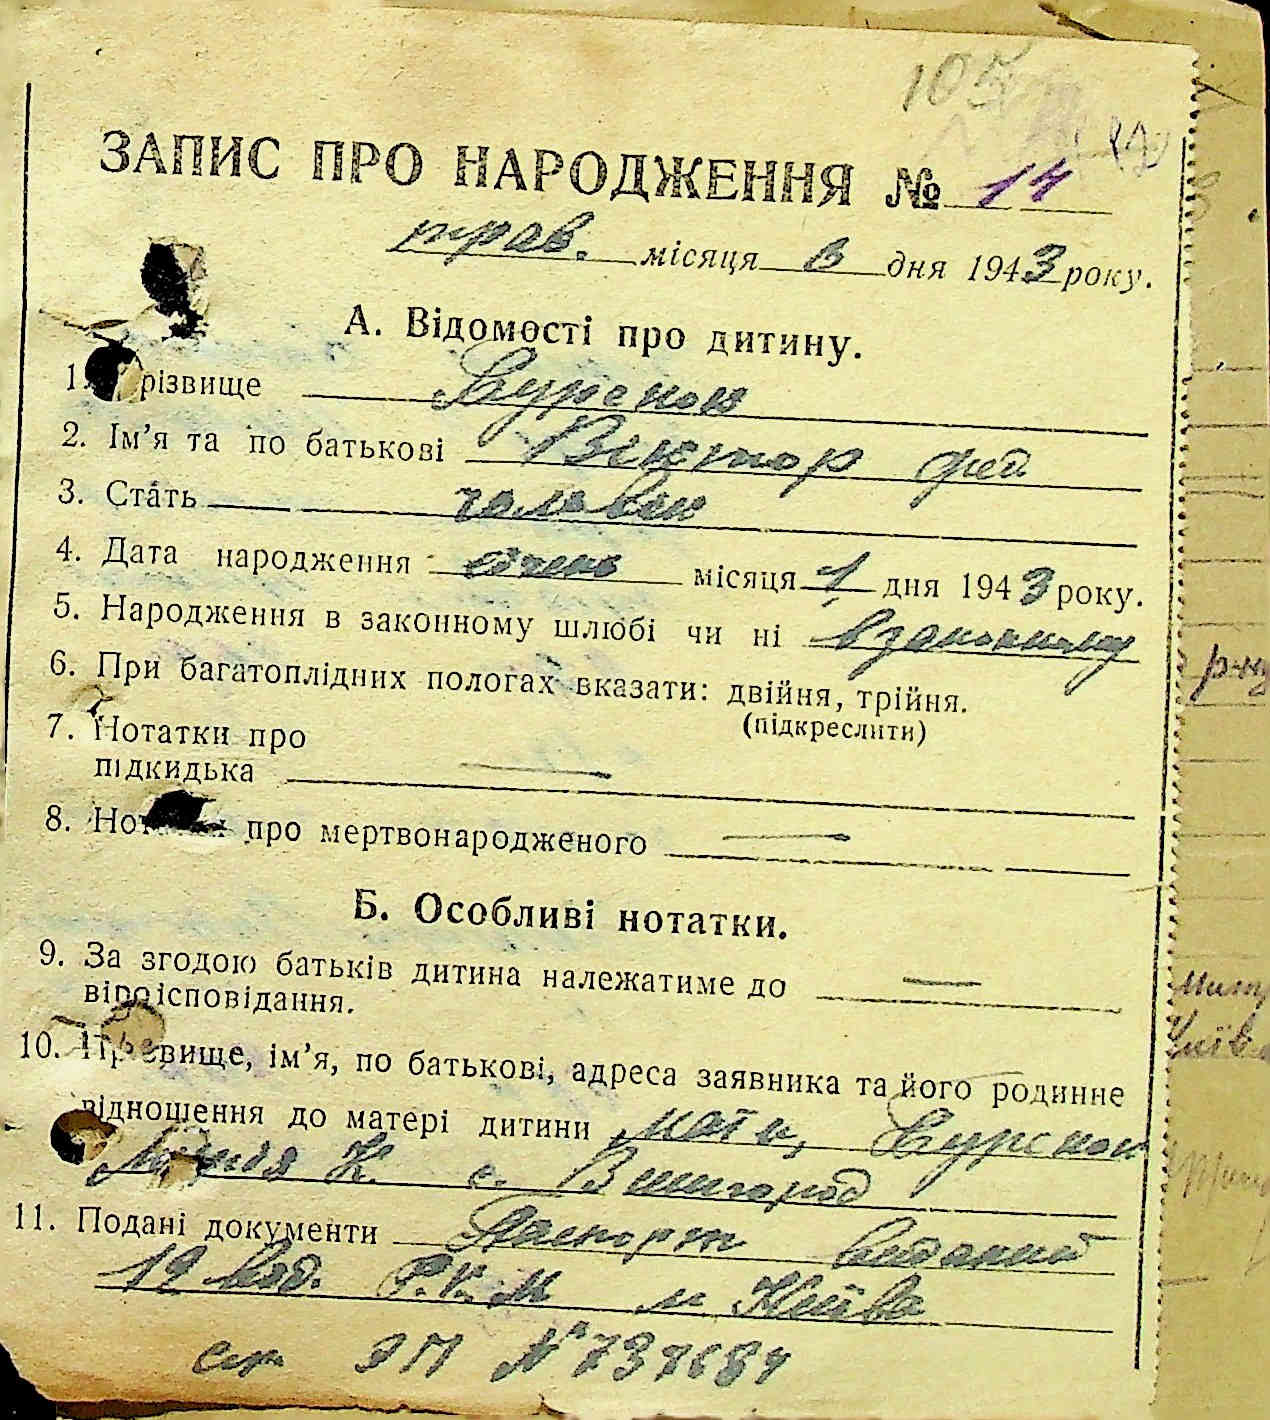 105
ЗАПИС ПРО НАРОДЖЕННЯ № 14
трав. місяця 6 дня 1943 року.
А. Відомості про дитину.
1. Прізвище
2. Ім’я та по батькові Віктор Фед
3. Стать чоловік
4. Дата народження січень місяця 1 дня 1943 року.
5. Народження в законному шлюбі чи ні в законному
6. При багатоплідних пологах вказати: двійня, трійня.
(підкреслити)
7. Нотатки про
підкидька —
8. Нотатки про мертвонародженого —
Б. Особливі нотатки.
9. За згодою батьків дитина належатиме до —
віроісповідання.
10. Прізвище, ім’я, по батькові, адреса заявника та його родинне
відношення до матері дитини мати,
К. с. Вишгород
11. Подані документи Паспорт виданий
19 від. Р.К.М м. Київа
р-ну